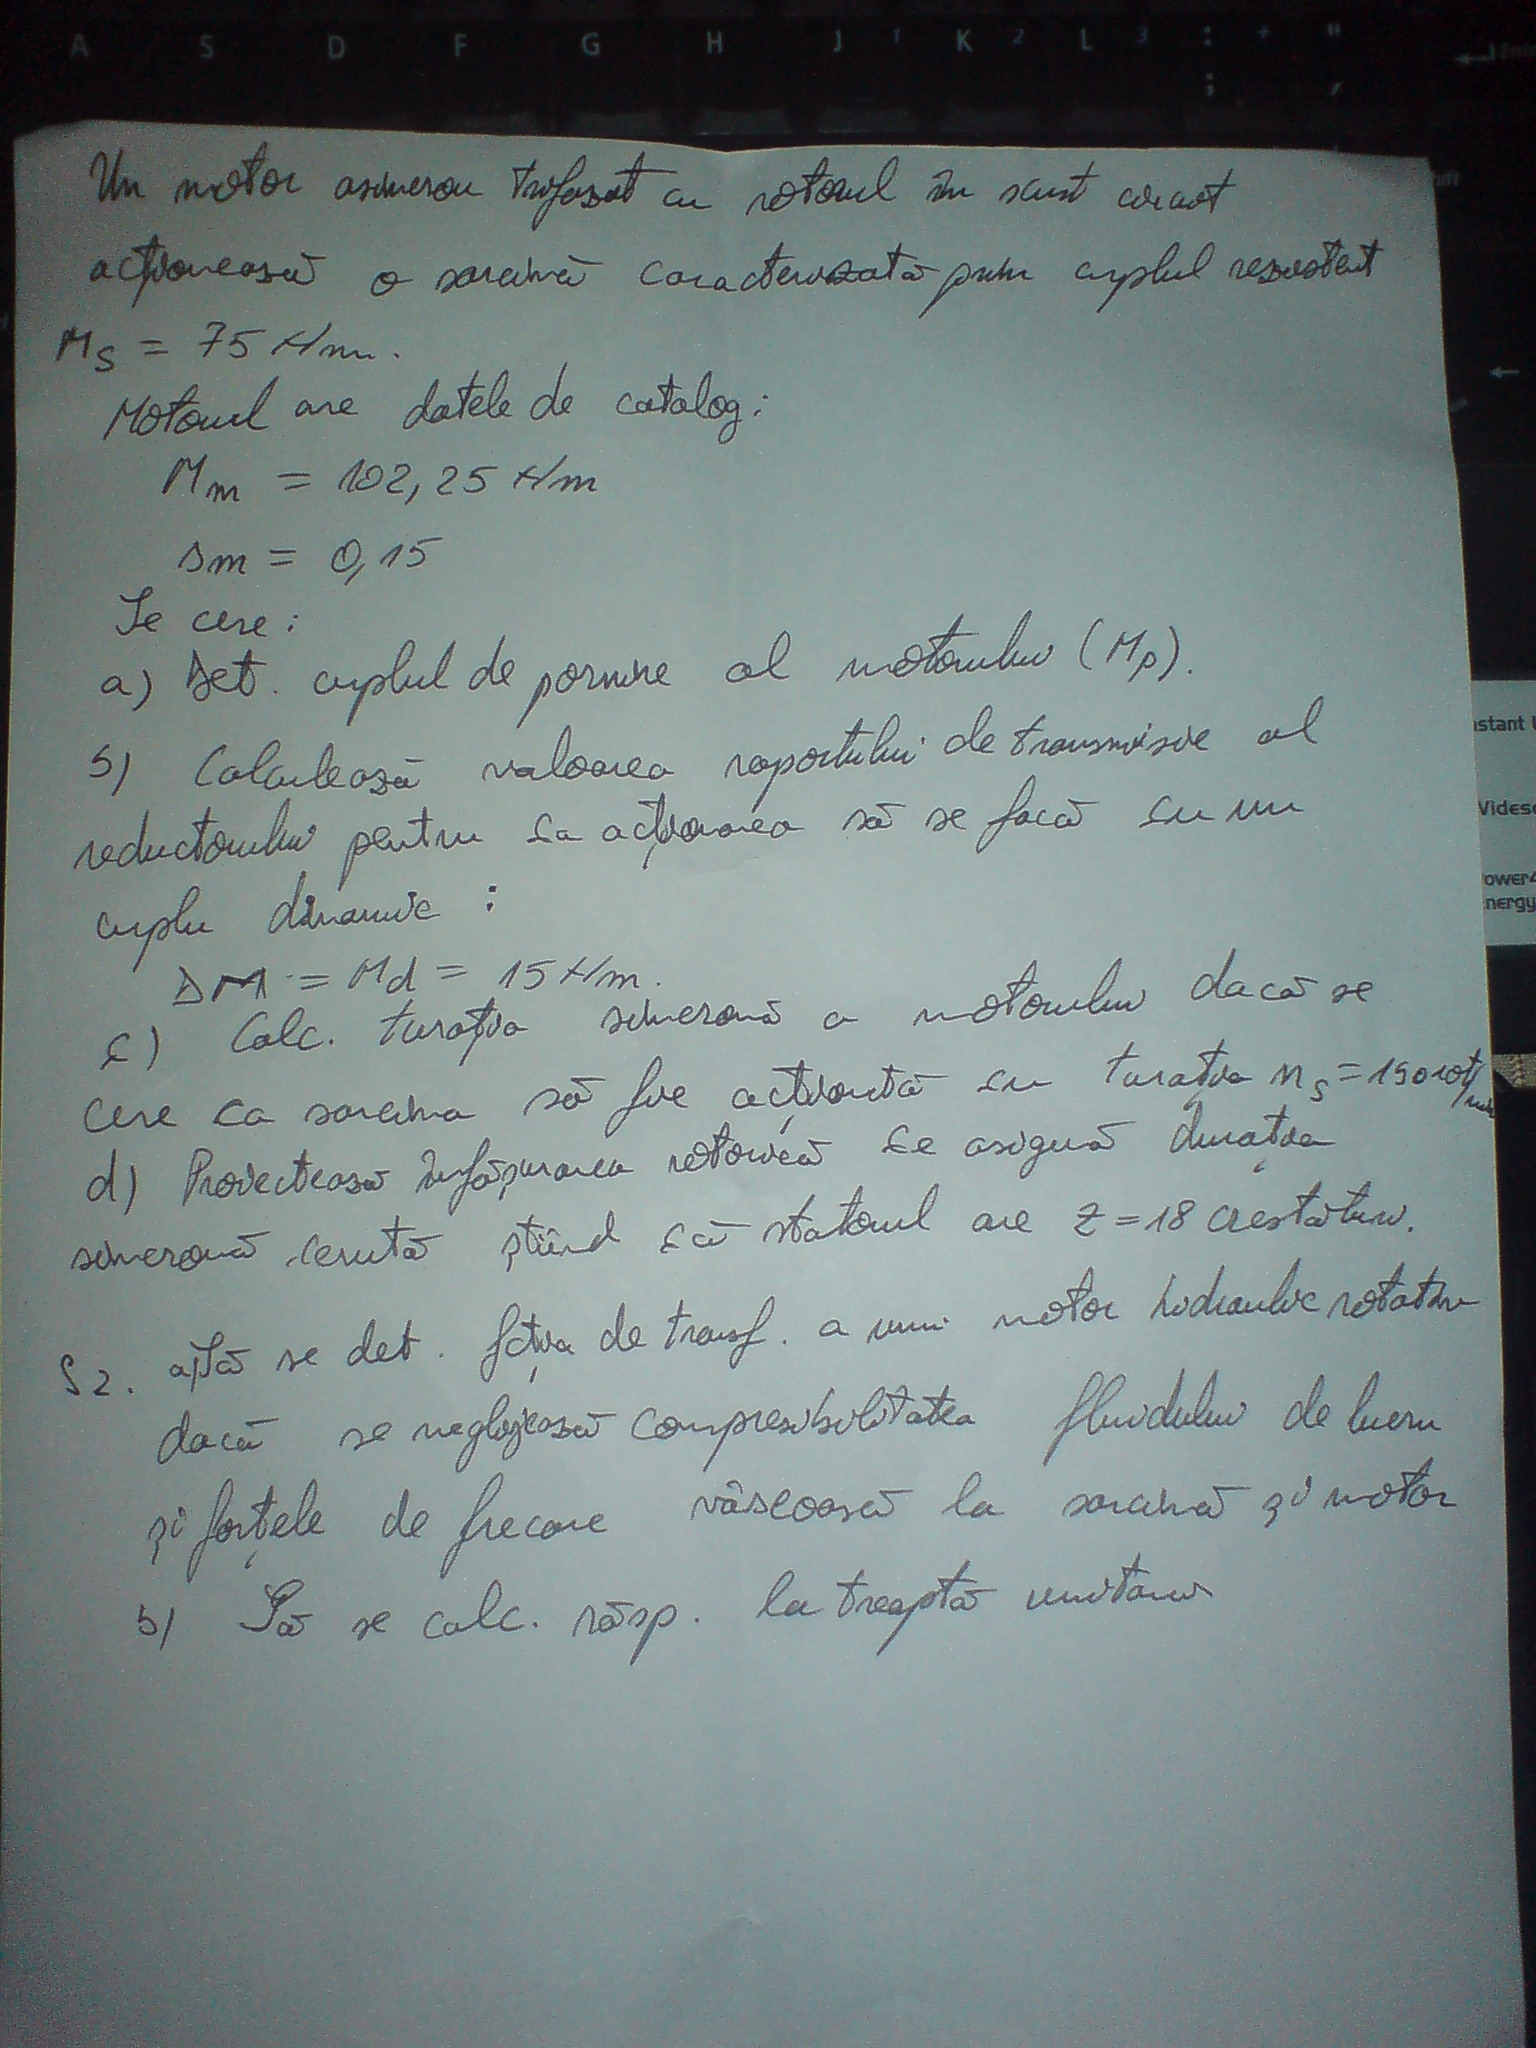 A S D F G H J 1 K 2 L 3 : ; + " ,
Un motor asincron trifazat cu rotorul în scurt circuit
acționează o sarcină caracterizată prin cuplul rezistent
Ms = 75 Nm.
Motorul are datele de catalog:
Mm = 102,25 Nm
sm = 0,15
Se cere:
a) Det. cuplul de pornire al motorului (Mp).
b) Calculează valoarea raportului de transmisie al
reductorului pentru ca acționarea să se facă cu un
cuplu dinamic :
ΔM = Md = 15 Nm.
c) Calc. turația sincronă a motorului dacă se
cere ca sarcina să fie acționată cu turația ns = 190 rot/min
d) Proiectează înfășurarea rotorică ce asigură durația
sincronă cerută știind că statorul are z = 18 crestături.
S2. a) Să se det. fcția de transf. a unui motor hidraulic rotativ
dacă se neglijează compresibilitatea fluidului de lucru
și forțele de frecare vâscoasă la sarcină și motor
b) Să se calc. răsp. la treaptă unitară